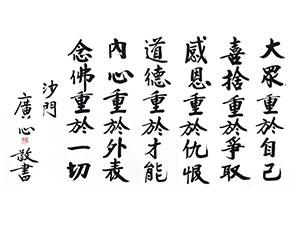 大眾重於自己
喜捨重於爭取
感恩重於仇恨
道德重於才能
內心重於外表
念佛重於一切
沙門
廣心敬書